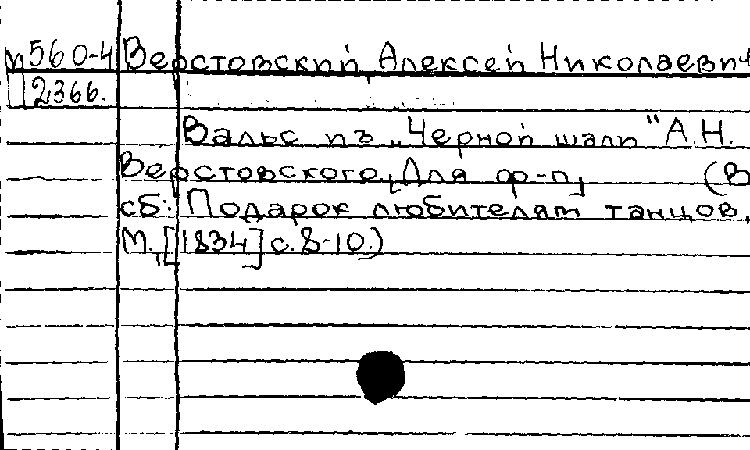 п560-4 Верстовский, Алексей Николаевич
12366.
Вальс изъ „Черной шали" А.Н.
Верстовского. [Для ф-п] (В
сб: Подарок любителям танцов,
М., [1834] с. 8-10.)